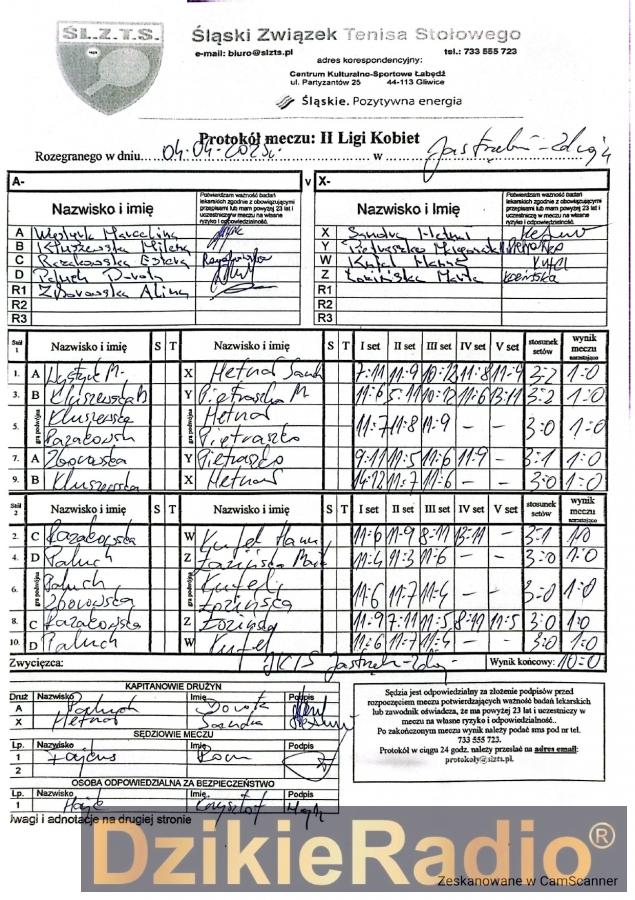 ŚL.Z.T.S.
Śląski Związek Tenisa Stołowego
e-mail: biuro@slzts.pl tel.: 733 555 723
adres korespondencyjny:
Centrum Kulturalno-Sportowe Łabędź
ul. Partyzantów 25 44-113 Gliwice
Śląskie. Pozytywna energia
Protokół meczu: II Ligi Kobiet
Rozegranego w dniu 04.04.2025r. w Jastrzębiu-Zdroju
A- v X-
Nazwisko i imię Potwierdzam ważność badań lekarskich zgodnie z obowiązującymi przepisami lub mam powyżej 23 lat i uczestniczę w meczu na własne ryzyko i odpowiedzialność. Nazwisko i Imię Potwierdzam ważność badań lekarskich zgodnie z obowiązującymi przepisami lub mam powyżej 23 lat i uczestniczę w meczu na własne ryzyko i odpowiedzialność.
A Marcelina X Hetnał
B Kluszewska Milena Y
C Razakowska Estera W Kufel
D Paluch Dorota Z Łozińska Marta
R1 Zborowska Alina R1
R2 R2
R3 R3
Stół 1 Nazwisko i imię S T Nazwisko i imię S T I set II set III set IV set V set stosunek setów wynik meczu narastająco
1. A M. X Hetnał 7:11 11:9 10:12 11:8 11:9 3:2 1:0
3. B Kluszewska M Y Pietraszko M 11:6 5:11 10:12 11:6 13:11 3:2 1:0
5. gra podwójna Kluszewska Hetnał 11:7 11:8 11:9 - - 3:0 1:0
Razakowska Pietraszko
7. A Zborowska Y Pietraszko 9:11 11:5 11:6 11:9 - 3:1 1:0
9. B Kluszewska X Hetnał 14:12 11:7 11:6 - - 3:0 1:0
Stół 2 Nazwisko i imię S T Nazwisko i imię S T I set II set III set IV set V set stosunek setów wynik meczu narastająco
2. C Razakowska W Kufel 11:6 11:9 8:11 13:11 - 3:1 1:0
4. D Paluch Z Łozińska 11:4 11:3 11:6 - - 3:0 1:0
6. gra podwójna Paluch Kufel 11:6 11:7 11:4 - - 3:0 1:0
Zborowska Łozińska
8. C Razakowska Z Łozińska 11:9 7:11 11:5 8:11 11:5 3:0 1:0
10. D Paluch W Kufel 11:6 11:7 11:4 - - 3:0 1:0
Zwycięzca: JKTS Jastrzębie-Zdrój Wynik końcowy: 10:0
KAPITANOWIE DRUŻYN
Druż Nazwisko Imię Podpis
A Paluch Dorota
X Hetnał Sandra
SĘDZIOWIE MECZU
Lp. Nazwisko Imię Podpis
1 Zajcus
2
OSOBA ODPOWIEDZIALNA ZA BEZPIECZEŃSTWO
Lp. Nazwisko Imię Podpis
1 Hajk Krzysztof Hajk
Sędzia jest odpowiedzialny za złożenie podpisów przed
rozpoczęciem meczu potwierdzających ważność badań lekarskich
lub zawodnik oświadcza, że ma powyżej 23 lat i uczestniczy w
meczu na własne ryzyko i odpowiedzialność.
Po zakończonym meczu wynik należy podać sms pod nr tel.
733 555 723.
Protokół w ciągu 24 godz. należy przesłać na adres email:
protokoly@slzts.pl.
Uwagi i adnotacje na drugiej stronie
DzikieRadio®
Zeskanowane w CamScanner